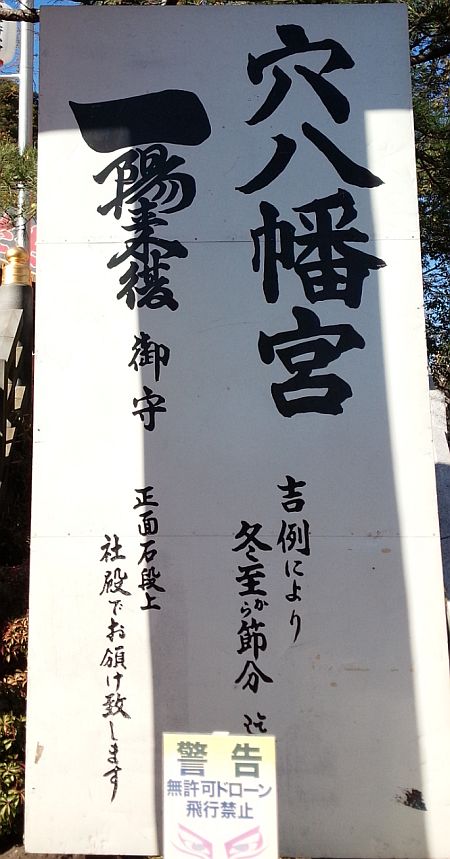 穴八幡宮
吉例により
冬至から節分迄
一陽来復 御守
正面石段上
社殿でお頒け致します
警告
無許可ドローン
飛行禁止